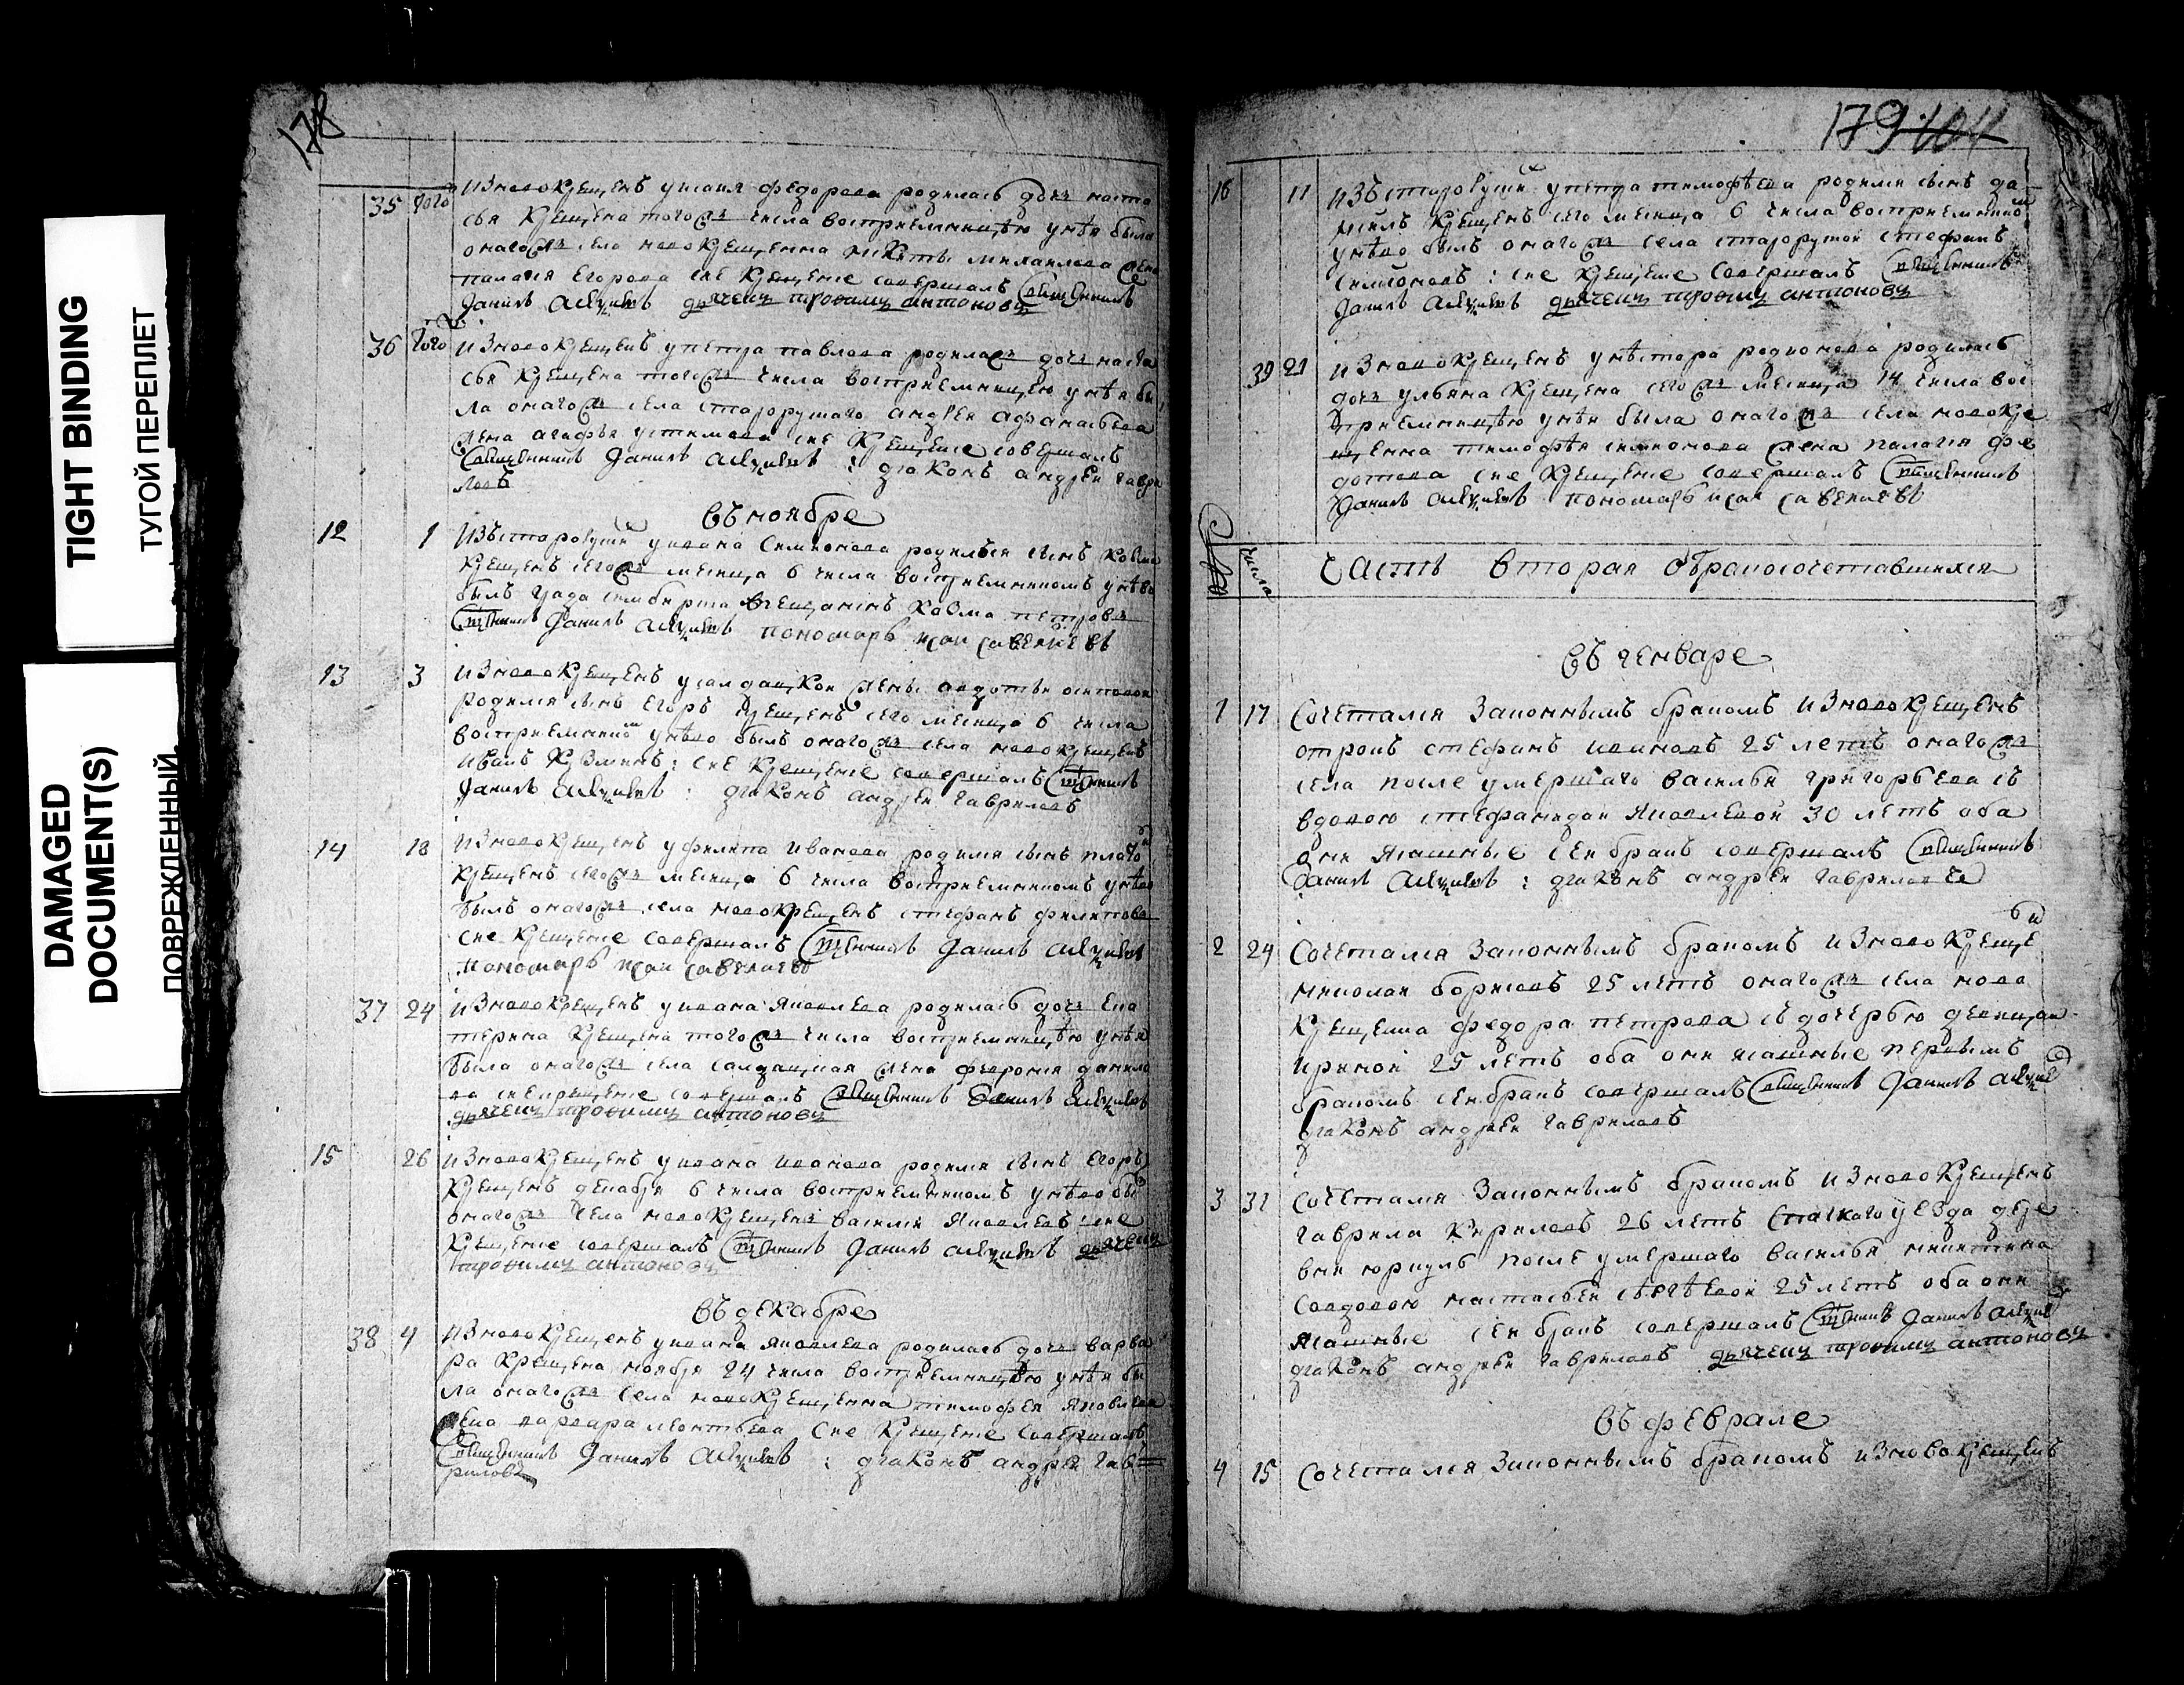 TIGHT BINDING
ТУГОЙ ПЕРЕПЛЕТ
DAMAGED
DOCUMENT(S)
ПОВРЕЖДЕННЫЙ
178
35 того изновокрещенъ уисаия федорова родилась дочь наста
сья крещена тогожъ числа восприемницею унѣя была
оногожъ села новокрещенна никиты михаилова жена
палагия егорова сие крещение совершалъ священникъ
данилъ дьячекъ трофимъ антоновъ
36 того изновокрещенъ упетра павлова родилась дочь наста
сья крещена тогожъ числа восприемницею унѣя бы
ла оногожъ села старорускаго андрея афанасьева
жена агафья устинова сие крещение совершалъ
священникъ данилъ : диаконъ андрей гаври
ловъ
въ ноябре
12 1 изъстаруских уивана симионова родилъся сынъ козма
крещенъ сегожъ месяца 6 числа восприемникомъ унѣво
былъ града симбирска козма петровъ
священникъ данилъ пономарь исаи савельевъ
13 3 изновокрещенъ усолдацкои жены авдотьи осиповои
родился сынъ егоръ крещенъ сего месяца 6 числа
восприемникомъ унѣво былъ оногожъ села новокрещенъ
иванъ кузминъ : сие крещение совершалъ священникъ
данилъ : диаконъ андреи гавриловъ
14 18 изновокрещенъ уфилипа иванова родился сынъ платонъ
крещенъ сегожъ месяца 6 числа восприемникомъ унѣво
былъ оногожъ села новокрещенъ стефанъ филиповъ
сие крещение совершалъ священникъ данилъ
пономарь исаи савельевъ
37 24 изновокрещенъ уивана яковлева родилась дочь ека
терина крещена тогожъ числа восприемницею унѣя
была оногожъ села салдацкая жена феврония данило
ва сиекрещение совершалъ священникъ данилъ
дьячекъ трофимъ антоновъ
15 26 изновокрещенъ уивана иванова родился сынъ егоръ
крещенъ декабря 6 числа восприемникомъ унѣво былъ
оногожъ села новокрещенъ василей яковлевъ : сие
крещение совершалъ священникъ данилъ дьячекъ
трофимъ антоновъ
въ декабре
38 4 изновокрещенъ уивана яковлева родилась дочь варва
ра крещена ноября 24 числа восприемницею унѣя бы
ла оногожъ села новокрещенна тимофея яковлева
жена варвара леонтьева сие крещение совершалъ
священникъ данилъ : диаконъ андрей гав
риловъ
179
16 11 изъстаруских упетра тимофѣева родился сынъ да
ниилъ крещенъ сего месяца 6 числа восприемникомъ
унѣво былъ оногожъ села старорускои стефанъ
симионовъ : сие крещение совершалъ священникъ
данилъ дьячекъ трофимъ антоновъ
39 21 изновокрещенъ унѣстора родионова родилась
дочь ульяна крещена сегожъ месяца 14 числа вос
приемницею унѣя была оногожъ села новокре
щенна тимофѣя симионова жена палагия фе
дотова сие крещение совершалъ священникъ
данилъ пономарь исаи савельевъ
числа
часть вторая обракосочетавшихся
въ генваре
1 17 сочетался законнымъ бракомъ изновокрещенъ
отрокъ стефанъ ивановъ 25 летъ оногожъ
села после умершаго василья григорьева съ
вдовою стефанидои яковлевой 30 летъ оба
они ясашные сей бракъ совершалъ священникъ
данилъ : диаконъ андрей гавриловъ
2 24 сочетался законнымъ бракомъ изновокреще
николаи борисовъ 25 летъ оногожъ села ново
крещенна федора петрова съ дочерью девицаи
ириной 25 летъ оба они ясашные первымъ
бракомъ сей бракъ совершалъ священникъ данилъ
диаконъ андреи гавриловъ
3 31 сочетался законнымъ бракомъ изновокрещенъ
гаврила кириловъ 26 летъ уезда дере
вни после умершаго василья никитина
совдовою настасьеи сѣргѣевой 25 летъ оба они
ясашные сей бракъ совершалъ священникъ данилъ
диаконъ андреи гавриловъ дьячекъ трофимъ антоновъ
въ феврале
4 15 сочетался законнымъ бракомъ изновокрещенъ